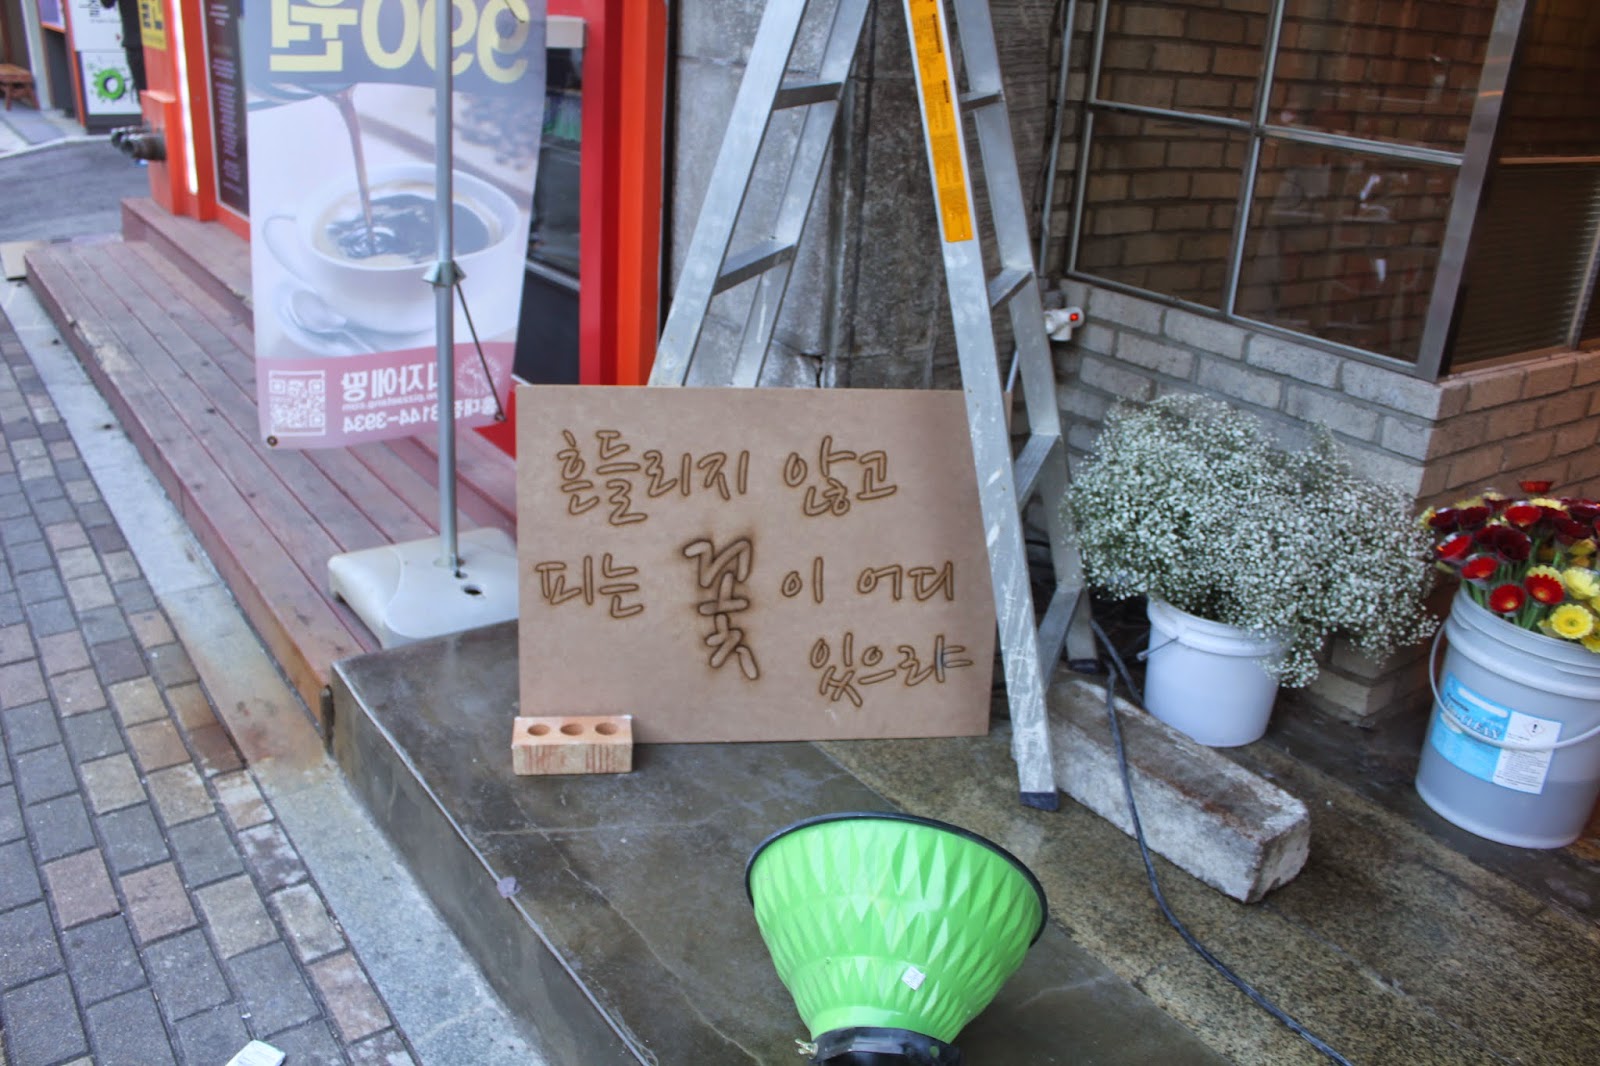 990원
피자에땅
3144-3934
흔들리지 않고
피는 꽃이 어디
있으랴